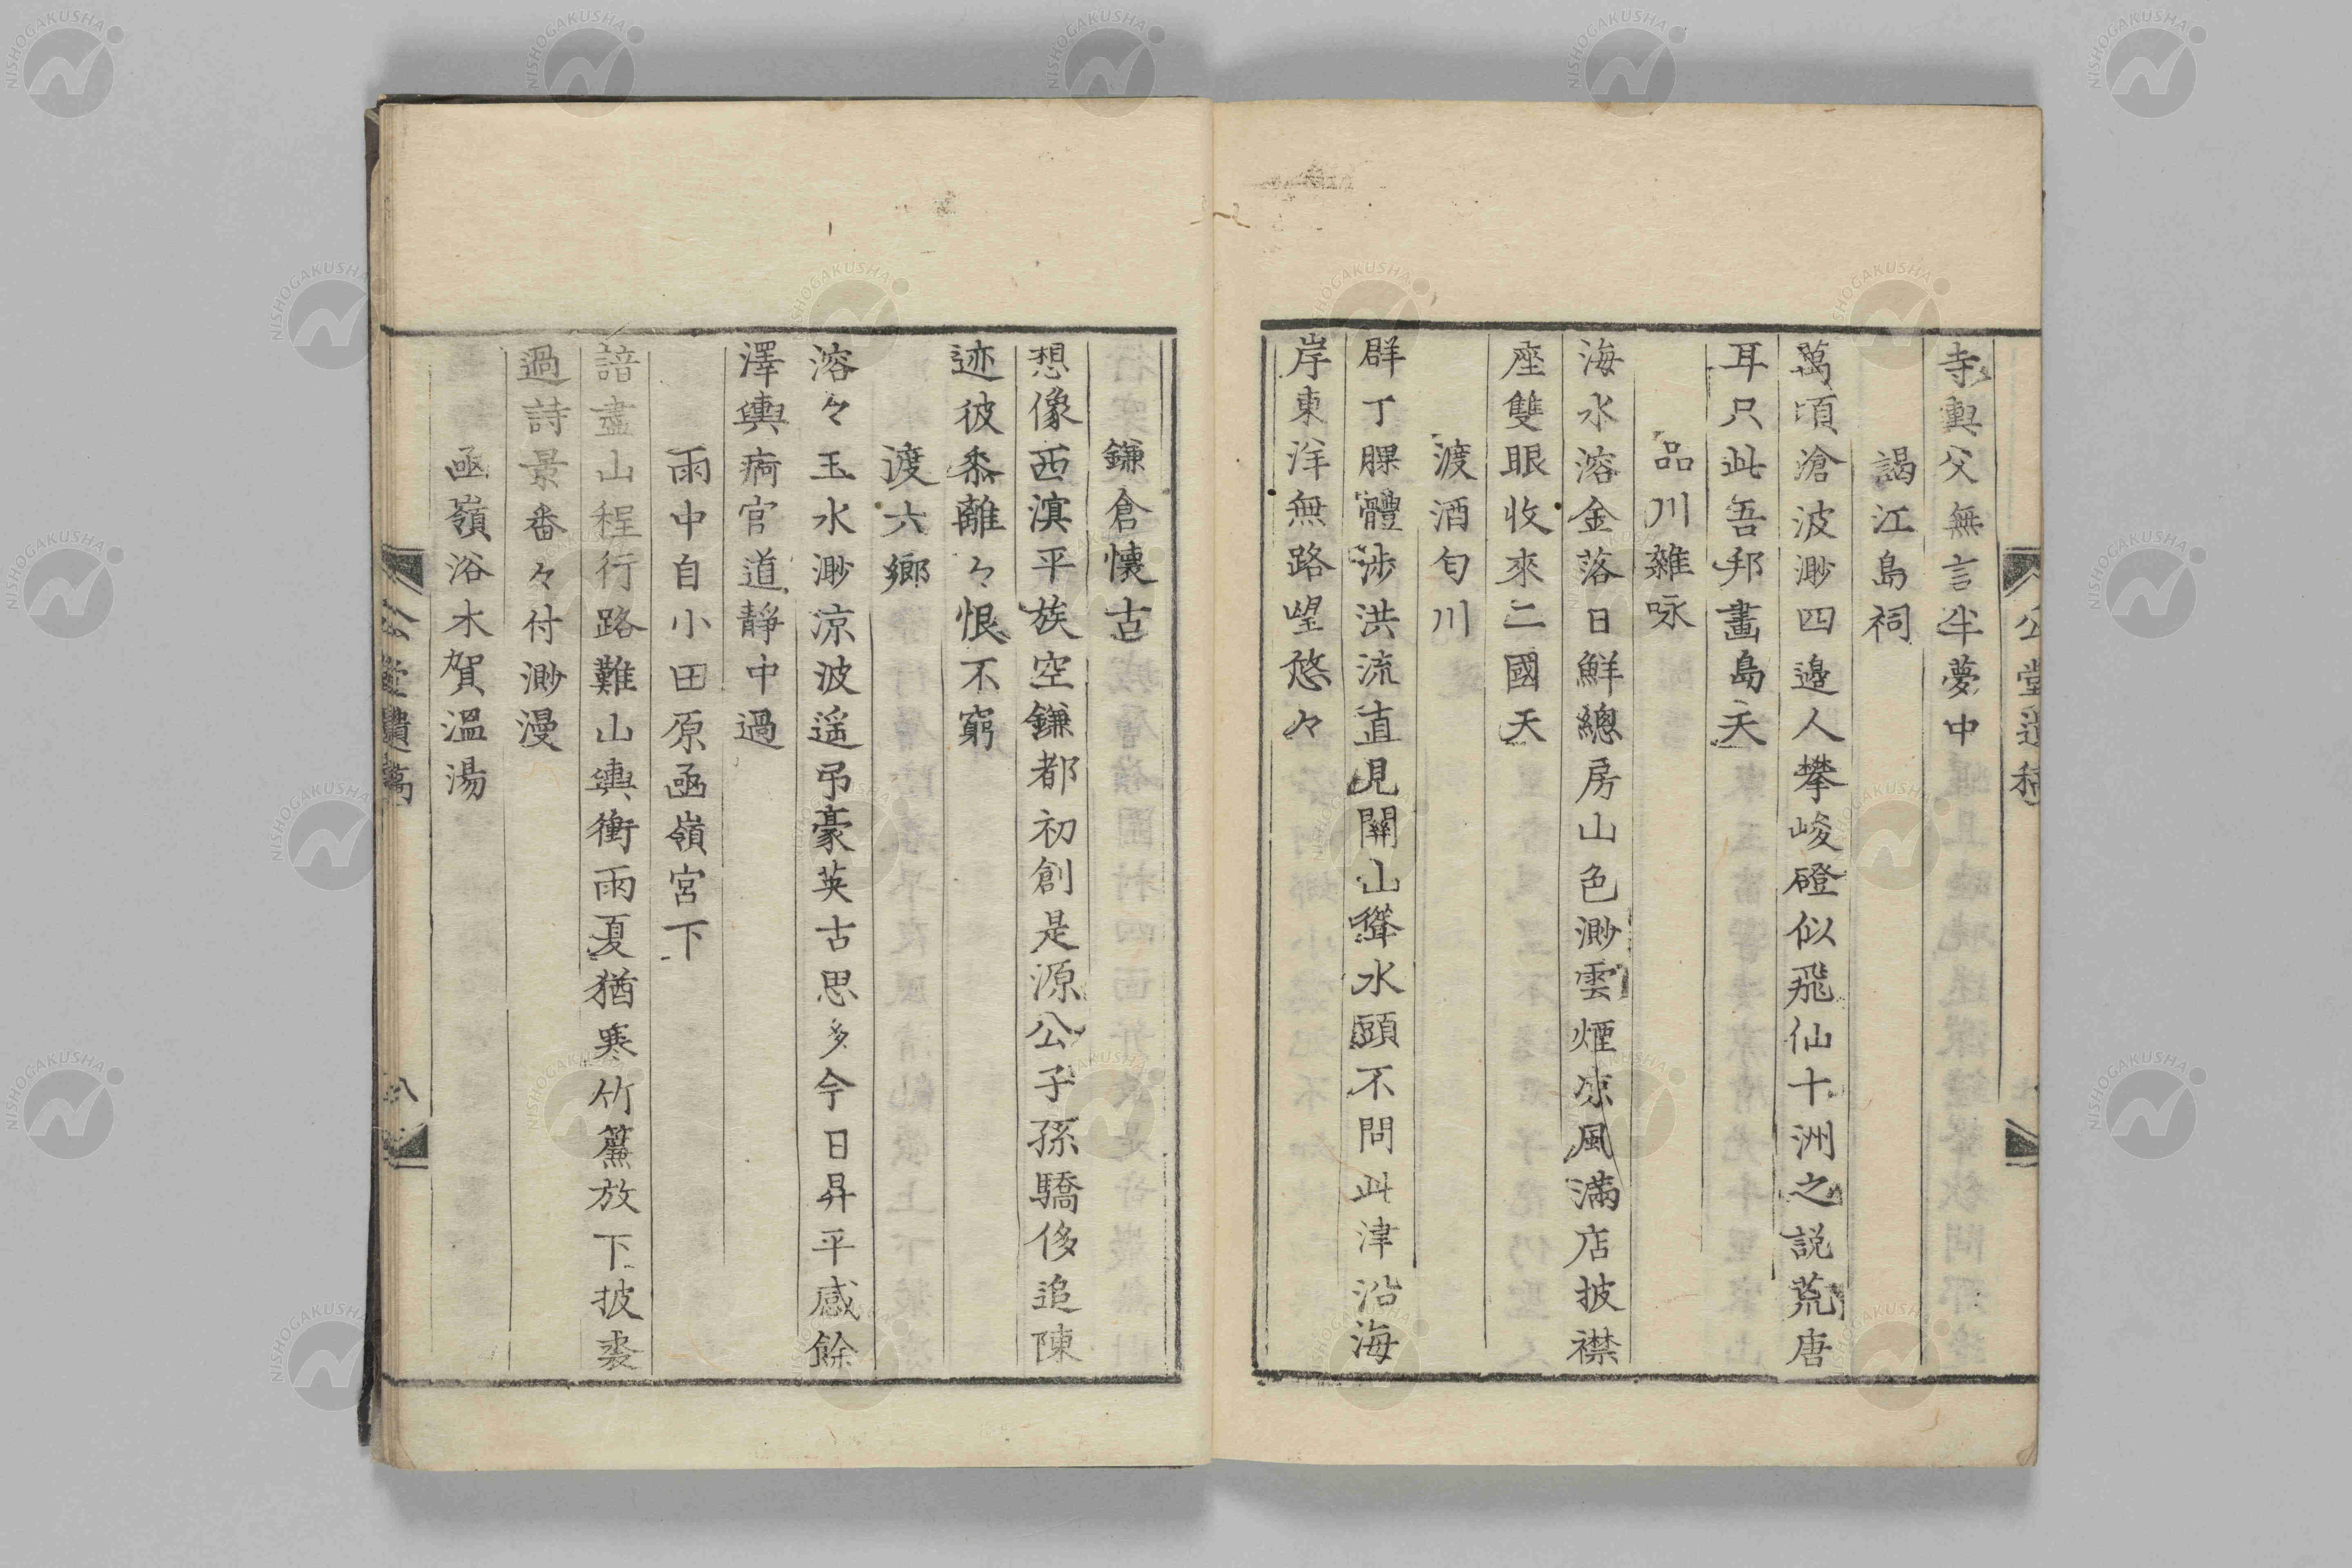 寺輿父無言半夢中
謁江島祠
萬頃滄波渺四邉人攀峻磴似飛仙十洲之説荒唐
耳只此吾邦畫島天
品川雜咏
海水溶金落日鮮總房山色渺雲煙凉風滿店披襟
座雙眼收來二國天
渡酒匂川
群丁躶體渉洪流直見關山聳水頭不問此津沿海
岸東洋無路望悠々
鎌倉懐古
想像西滇平族空鎌都初創是源公子孫驕侈追陳
迹彼黍離々恨不窮
渡六郷
溶々玉水渺凉波遥弔豪英古思多今日昇平感餘
澤輿病官道靜中過
雨中自小田原凾嶺宮下
諳盡山程行路難山輿衝雨夏猶寒竹簾放下披裘
過詩景番々付渺漫
凾嶺浴木賀温湯
NISHOGAKUSHA